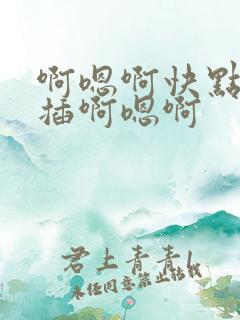 啊嗯啊快點
插啊嗯啊
君上青青l
未经同意禁止转载